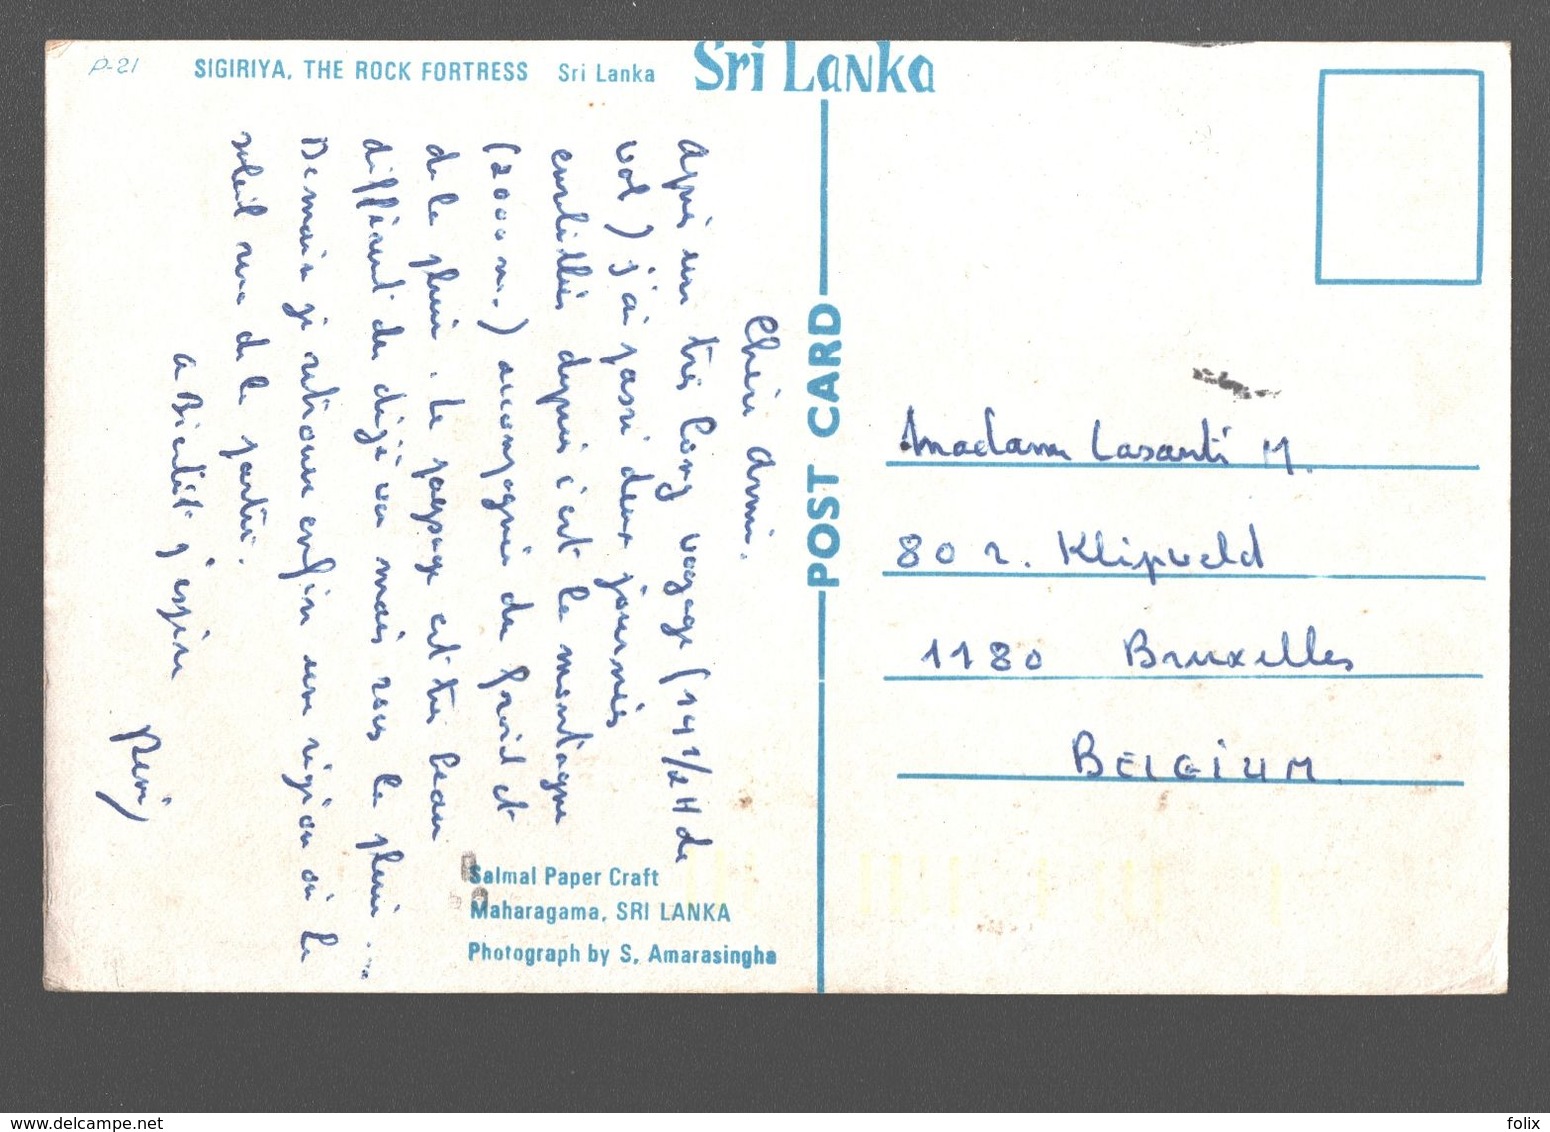 P-21
SIGIRIYA, THE ROCK FORTRESS Sri Lanka
Sri Lanka
POST CARD
Chère Annie.
Après un très long voyage (19 1/2 H de
vol) j'ai passé deux journées
ensoleillées depuis c'est la montagne
(2000 m.) accompagnée du froid et
de la pluie. Le paysage est très beau
différent du déjà vu mais sous la pluie...
Demain je retrouve enfin une région où le
soleil sera de la partie.
a Bientôt j'espère
Madame Lasanti M.
80 r. Klipveld
1180 Bruxelles
BELGIUM
Salmal Paper Craft
Maharagama, SRI LANKA
Photograph by S. Amarasingha
www.delcampe.net
folix